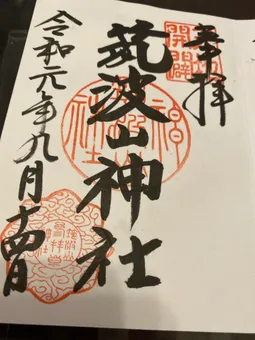 奉拝
筑波山神社
令和元年九月十四日